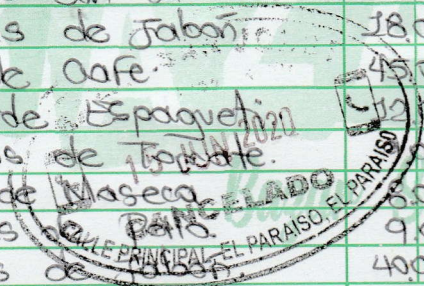 s de Jabón. 18.0
de Cafe. 45.
de Espagueti. 12
s de Tomate.
de Maseca 8.0
s de 9.
s de Jabon. 40.0
15 JUN 2020
CANCELADO
CALLE PRINCIPAL, EL PARAISO, EL PARAISO